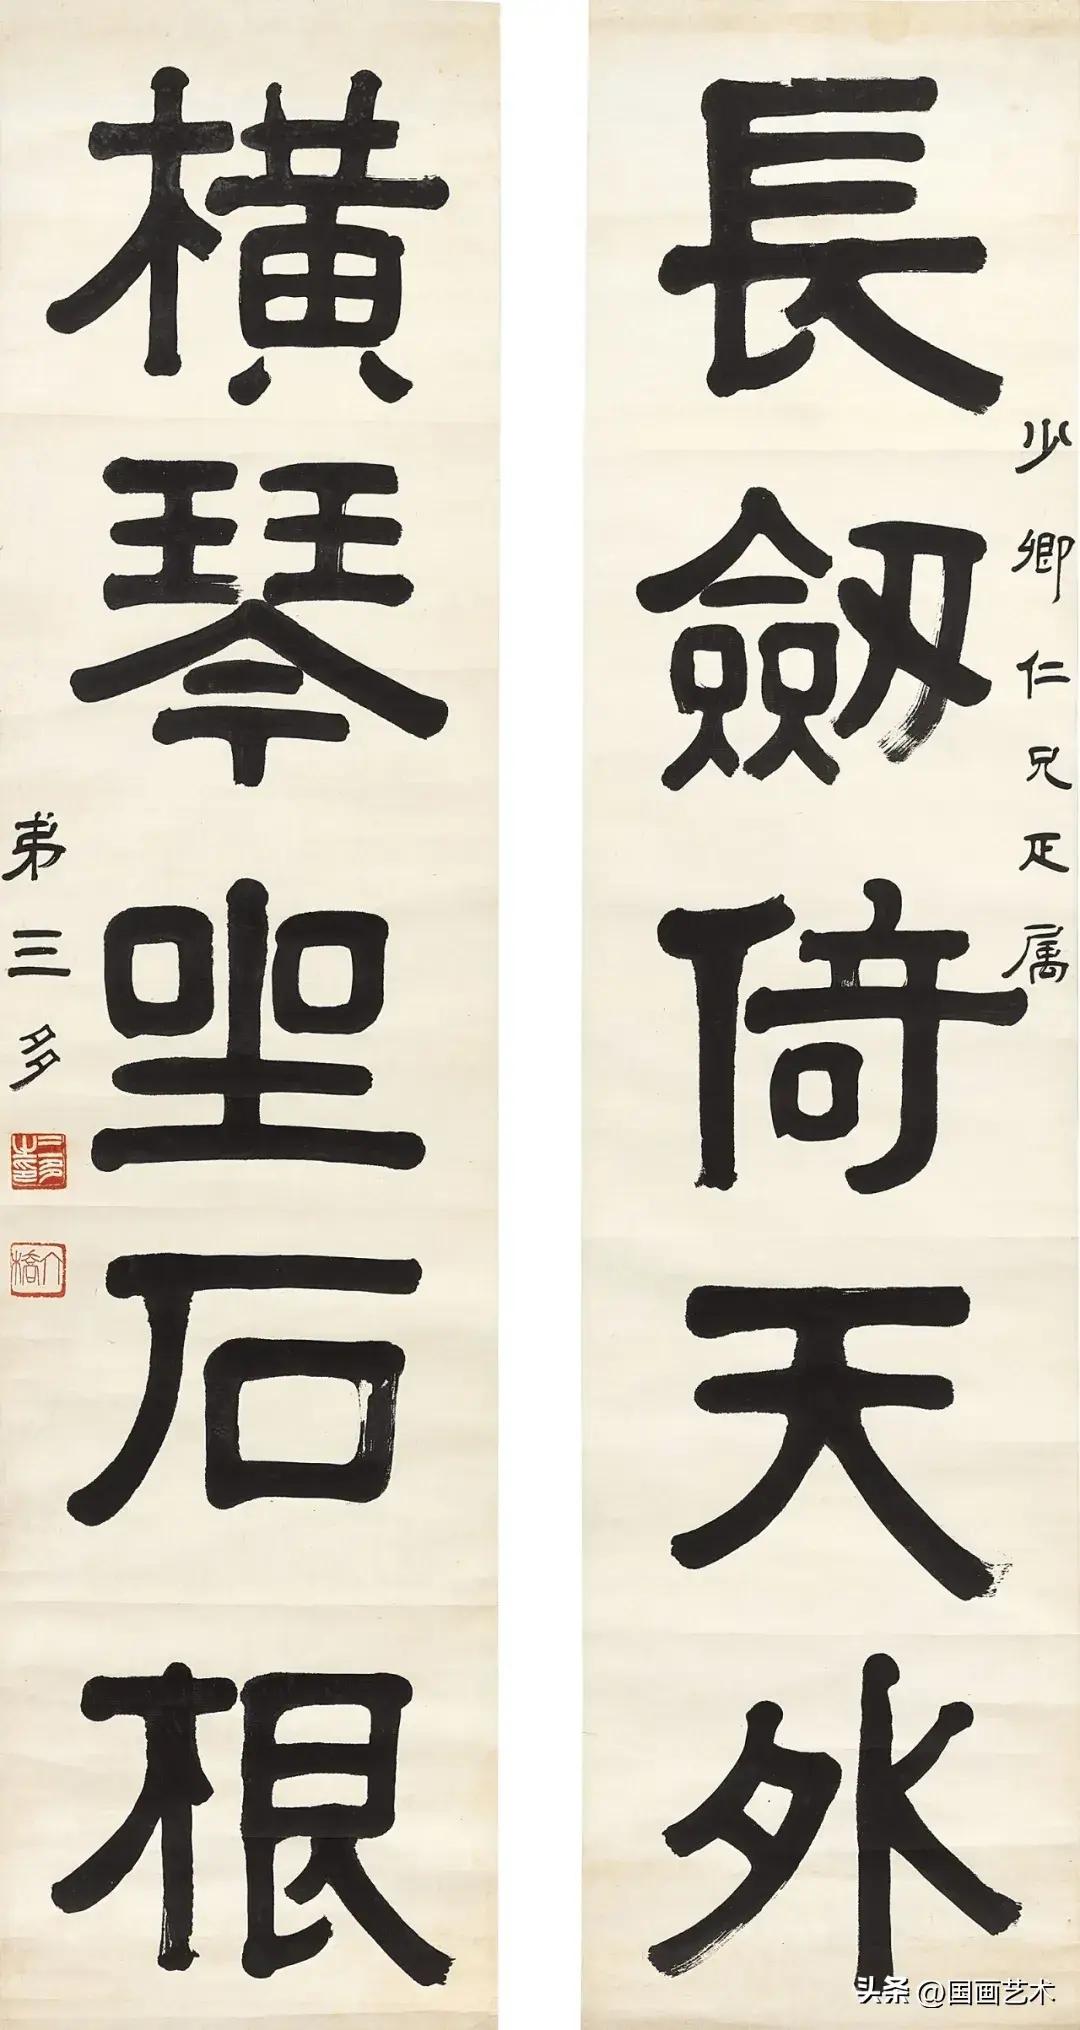 長劔倚天外
少卿仁兄正属
横琴坐石根
弟三多
六橋
头条 @国画艺术